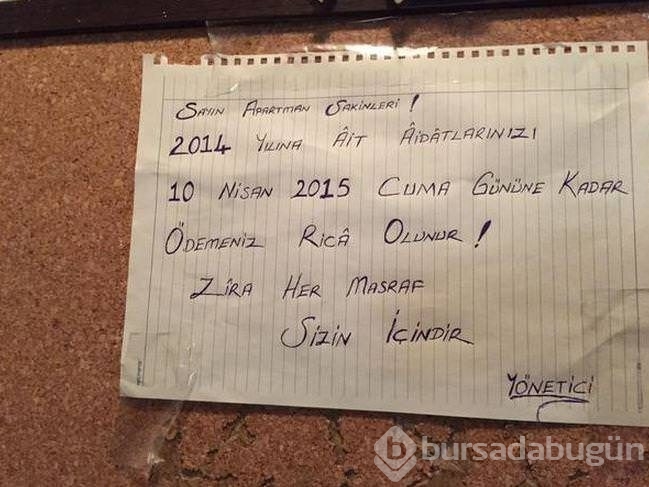 SAYIN APARTMAN SAKİNLERİ !
2014 YILINA ÂİT ÂİDÂTLARINIZI
10 NİSAN 2015 CUMA GÜNÜNE KADAR
ÖDEMENİZ RİCÂ OLUNUR !
ZÎRA HER MASRAF
SİZİN İÇİNDİR
YÖNETİCİ
b bursadabugün